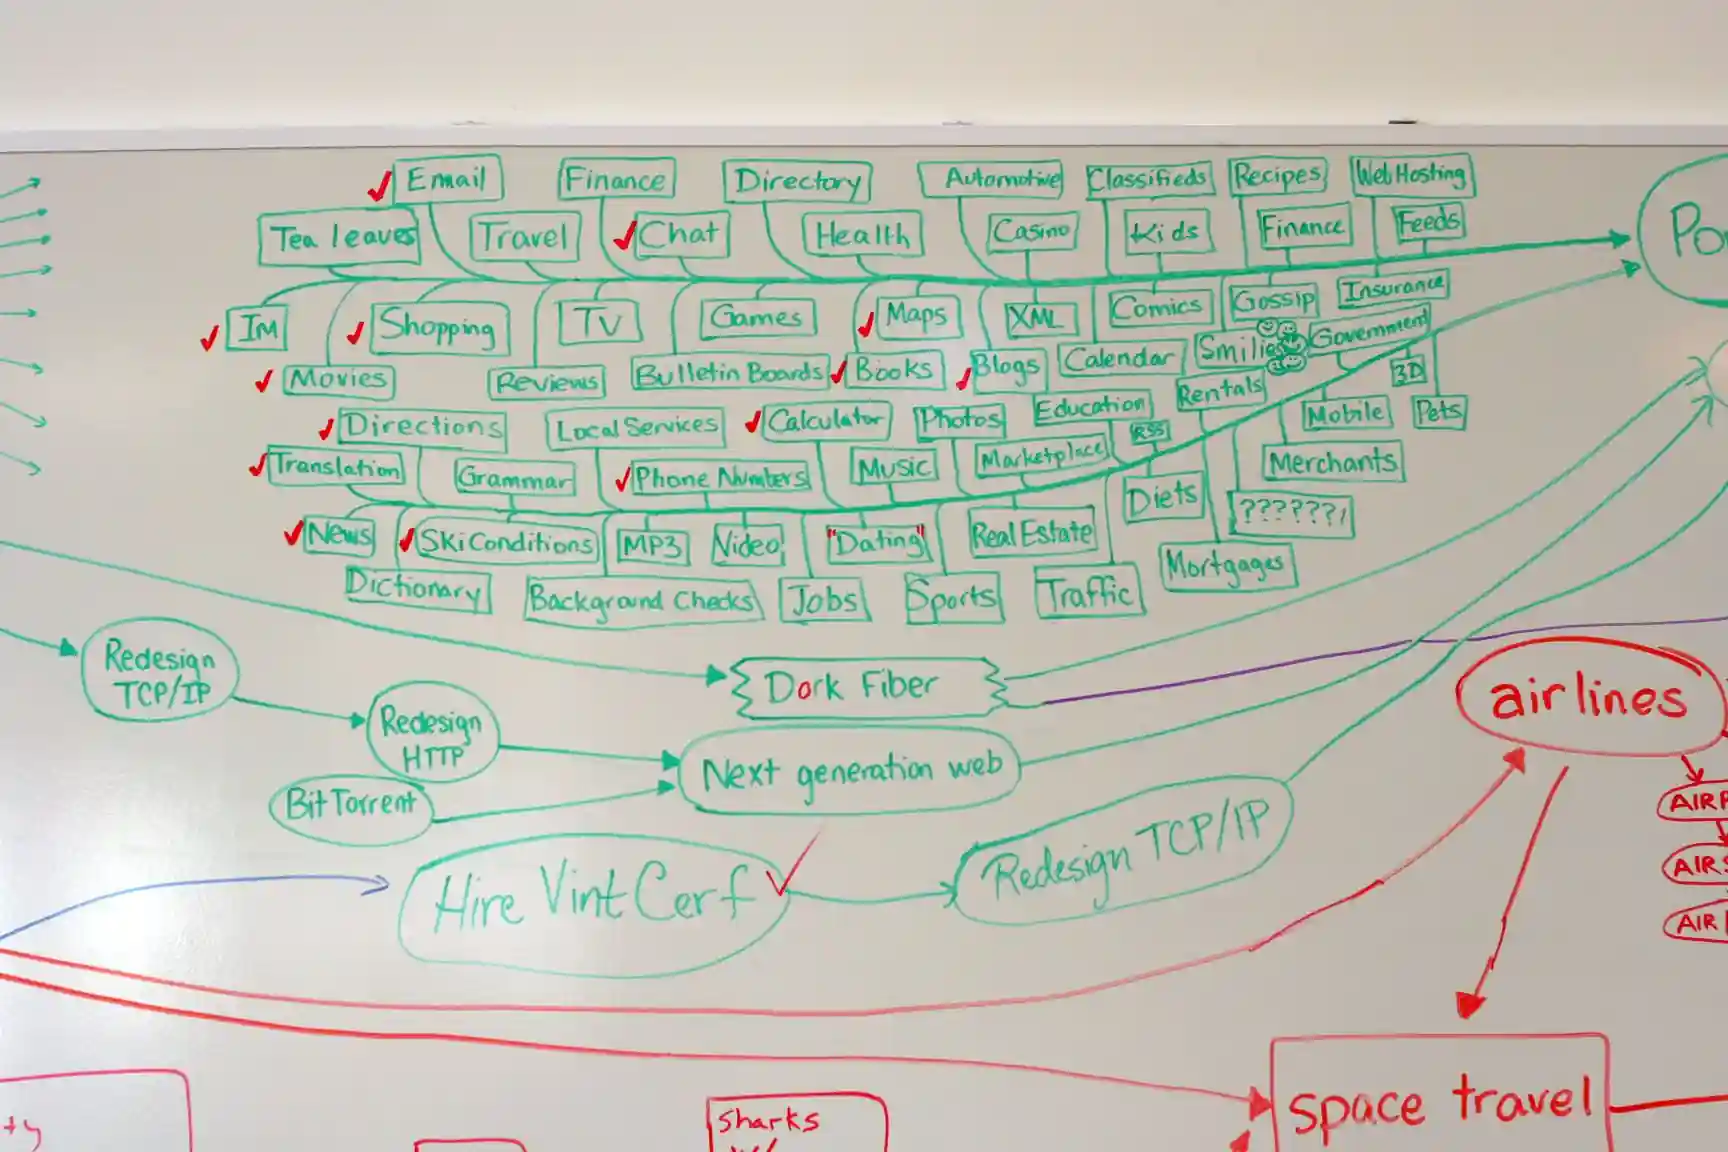 Email
Finance
Directory
Automotive
Classifieds
Recipes
Web Hosting
Tea leaves
Travel
Chat
Health
Casino
Kids
Finance
Feeds
IM
Shopping
TV
Games
Maps
XML
Comics
Gossip
Insurance
Movies
Reviews
Bulletin Boards
Books
Blogs
Calendar
Smilies
Government
Directions
Local Services
Calculator
Photos
Education
Rentals
3D
RSS
Mobile
Pets
Translation
Grammar
Phone Numbers
Music
Marketplace
Merchants
News
Ski Conditions
MP3
Video
"Dating"
Real Estate
Diets
??????/
Dictionary
Background Checks
Jobs
Sports
Traffic
Mortgages
Po
Redesign
TCP/IP
Redesign
HTTP
BitTorrent
Dork Fiber
Next generation web
Hire Vint Cerf
Redesign TCP/IP
airlines
AIR
AIR
AIR
space travel
ty
Sharks
w/